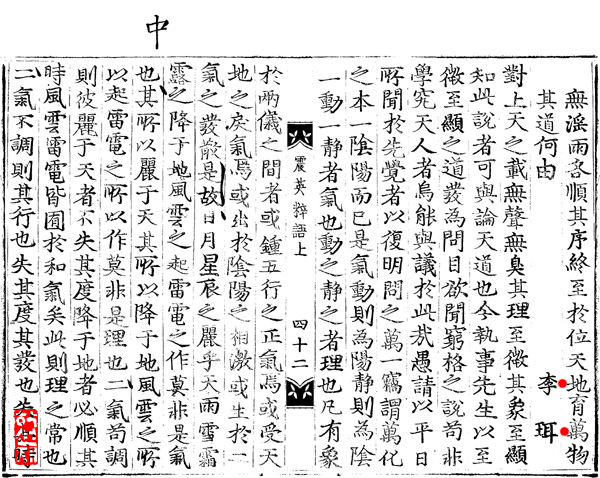 中
無淫雨各順其序終至於位天地育萬物
其道何由 李 珥
對上天之載無聲無臭其理至微其象至顯
知此說者可與論天道也今執事先生以至
微至顯之道發為問目欲聞窮格之說苟非
學究天人者烏能與議於此哉愚請以平日
所聞於先覺者以復明問之萬一竊謂萬化
之本一陰陽而已是氣動則為陽靜則為陰
一動一靜者氣也動之靜之者理也凡有象
震英粹語上 四十二
於兩儀之間者或鍾五行之正氣焉或受天
地之戾氣焉或出於陰陽之相激或生於二
氣之發散是故日月星辰之麗乎天雨雪霜
露之降于地風雲之起雷電之作莫非是氣
也其所以麗于天其所以降于地風雲之所
以起雷電之所以作莫非是理也二氣苟調
則彼麗于天者不失其度降于地者必順其
時風雲雷電皆囿於和氣矣此則理之常也
二氣不調則其行也失其度其發也失其時